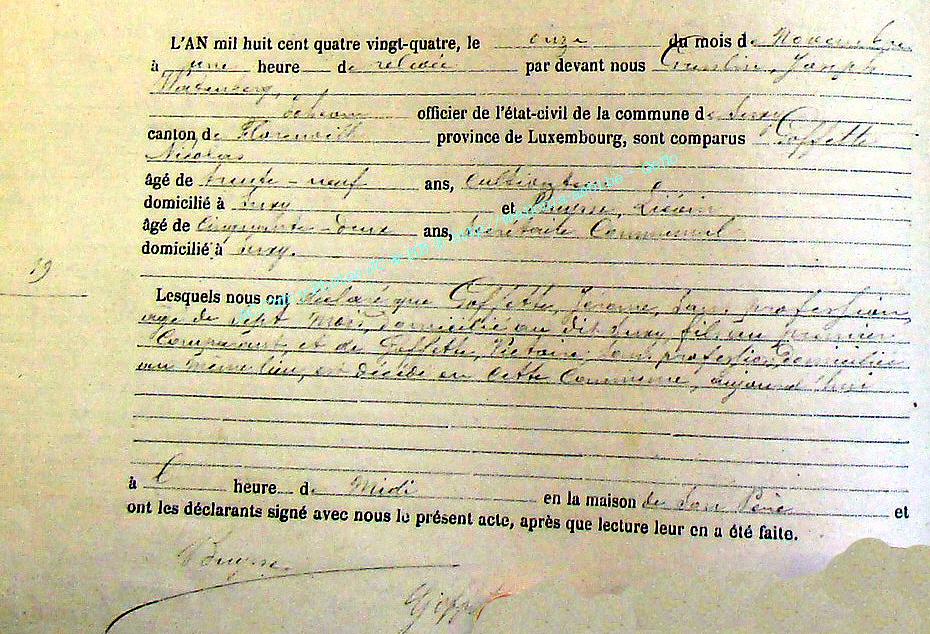 L'AN mil huit cent quatre vingt-quatre, le onze du mois de Novembre
à une heure de relevée par devant nous Joseph
échevin officier de l'état-civil de la commune de Suxy
canton de Florenville province de Luxembourg, sont comparus Goffette
Nicolas
âgé de trente-neuf ans, Cultivateur
domicilié à Suxy et
âgé de Cinquante-deux ans, Secrétaire Communal
domicilié à Suxy.
19
Lesquels nous ont déclaré que Goffette, Jerome, sans profession,
agé de Sept Mois, domicilié au dit Suxy, fils du premier
Comparant, et de Goffette, Victoire, sans profession, domiciliée
au même lieu, est décédé en cette Commune, aujourd'hui
à l heure de Midi en la maison de son Père et
ont les déclarants signé avec nous le présent acte, après que lecture leur en a été faite.